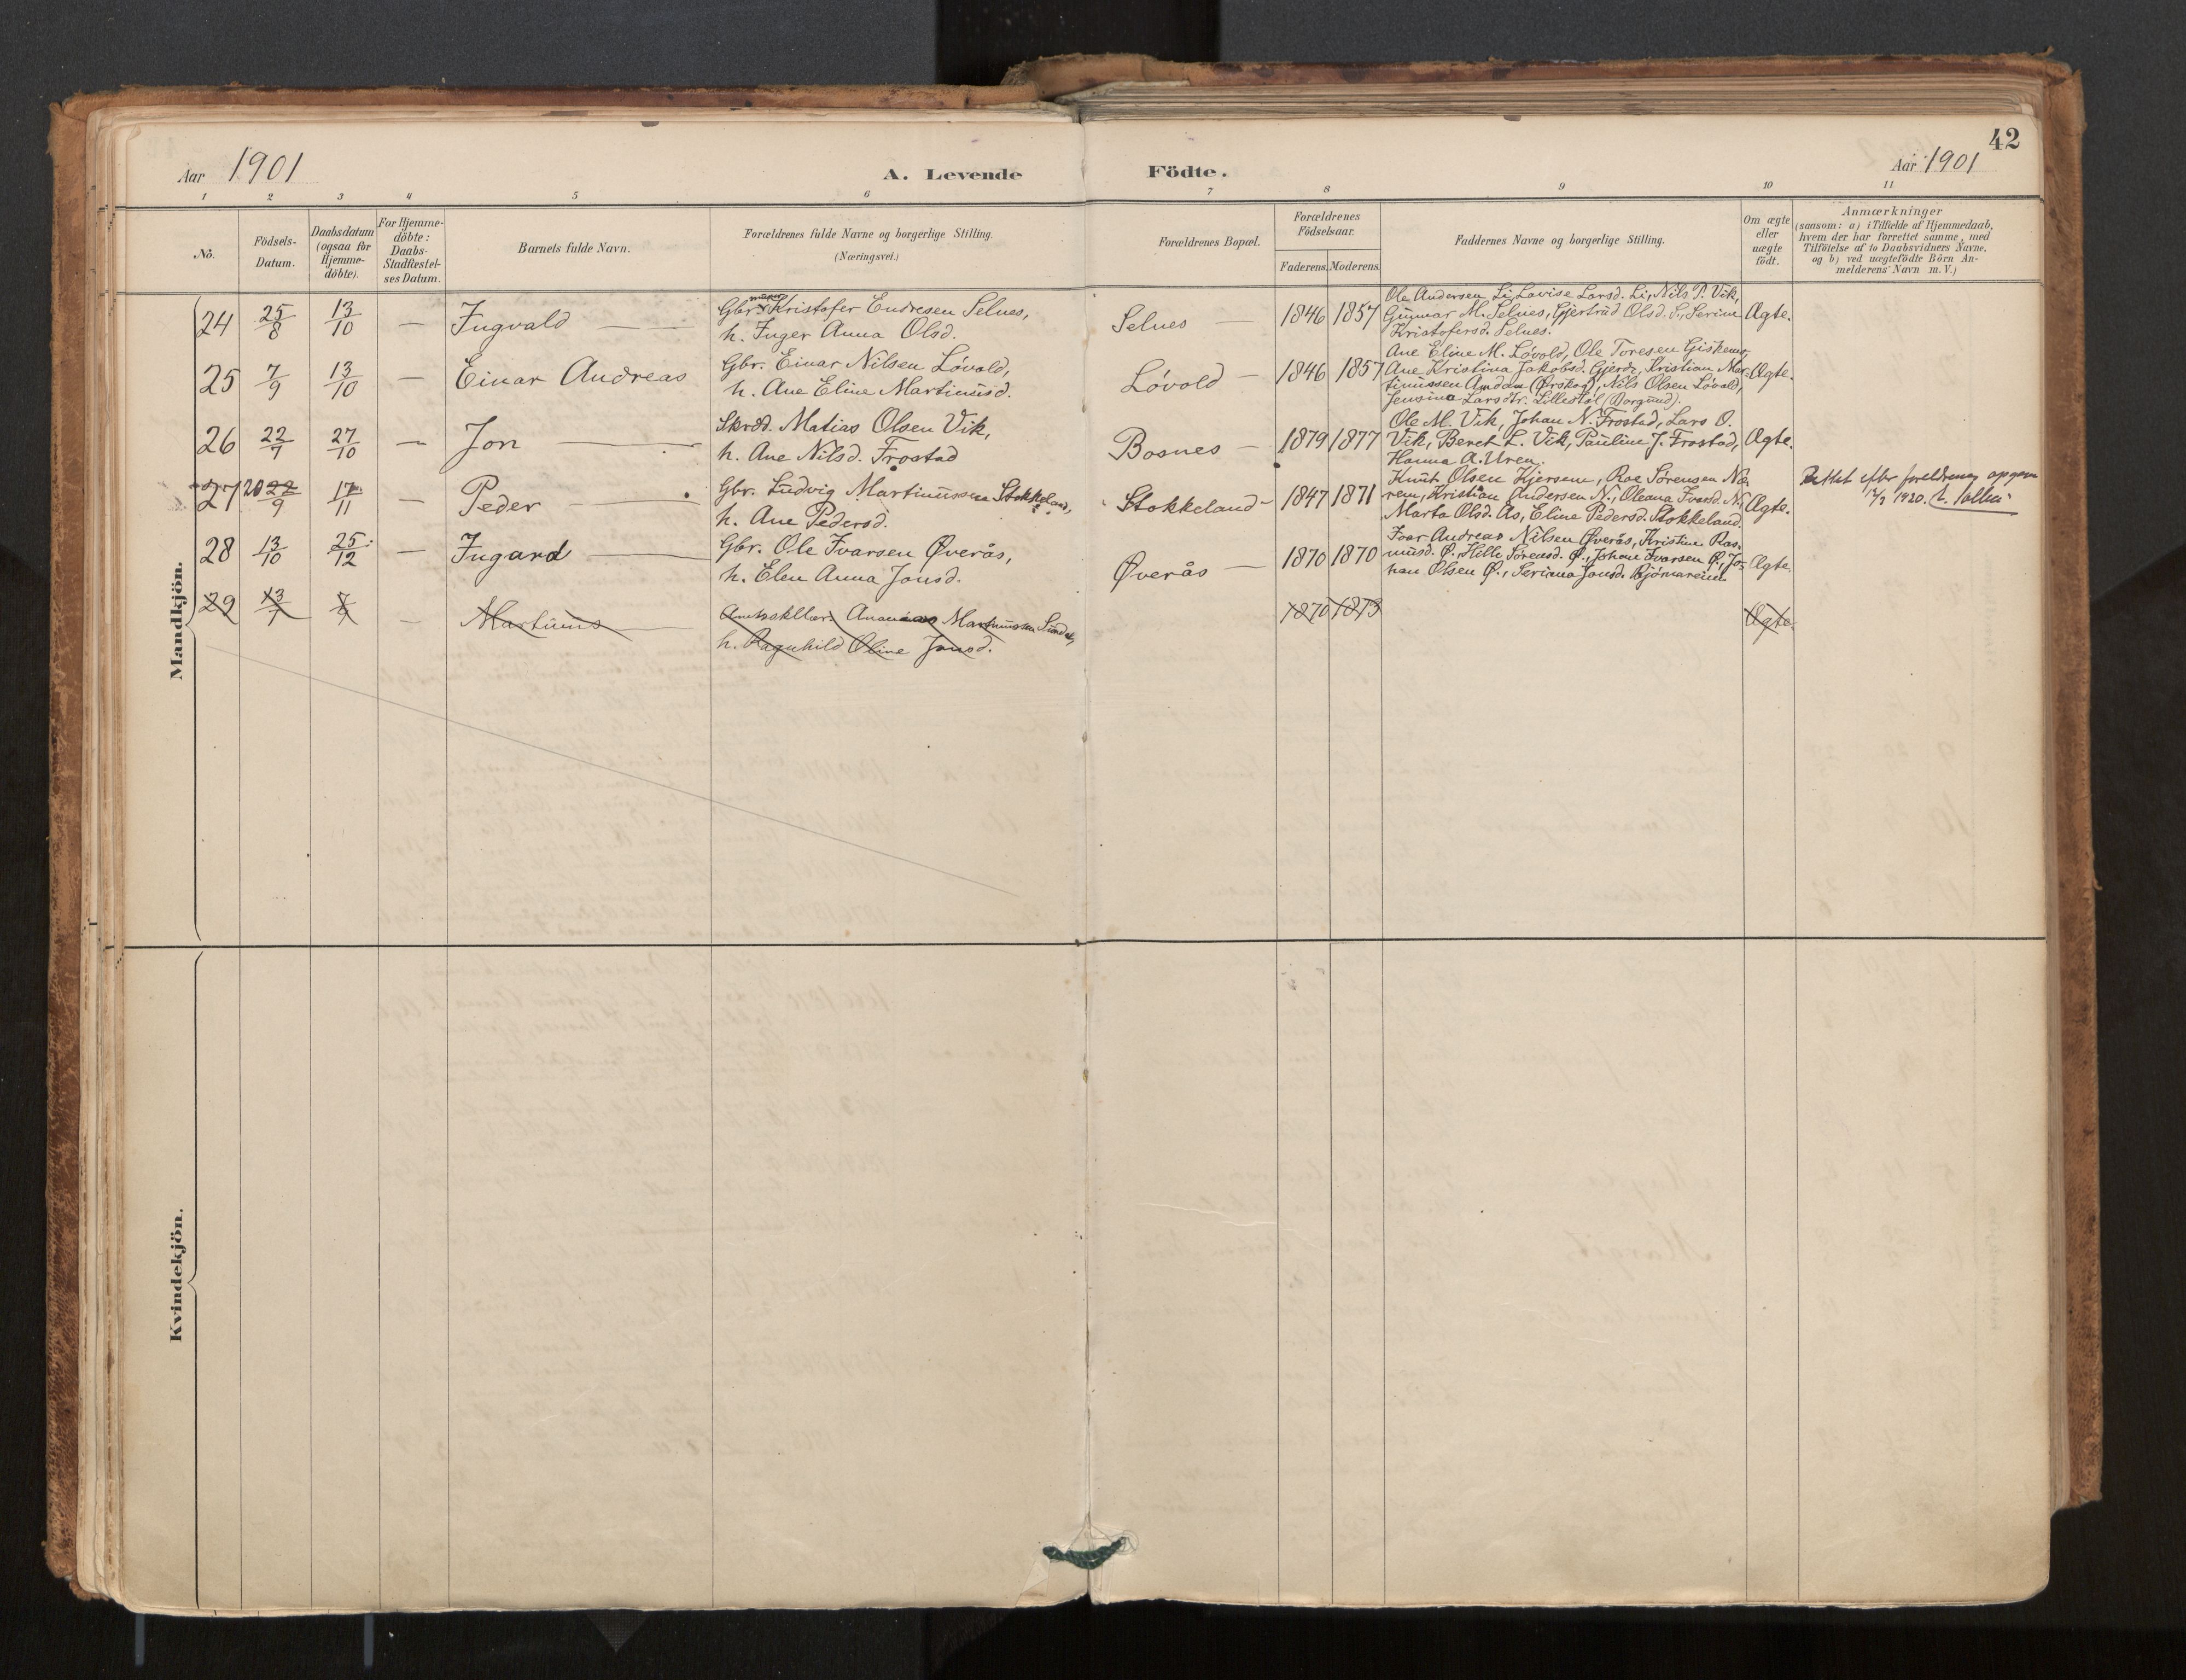 42
Aar 1901
A. Levende Födte.
Aar 1901
1 2 3 4 5 6 7 8 9 10 11
No.
Födsels-
Datum.
Daabsdatum
(ogsaa for
Hjemme-
döbte).
For Hjemme-
döbte:
Daabs-
Stadfæstel-
ses Datum.
Barnets fulde Navn.
Forældrenes fulde Navne og borgerlige Stilling.
(Næringsvei.)
Forældrenes Bopæl.
Forældrenes
Födselsaar.
Faderens. Moderens.
Faddernes Navne og borgerlige Stilling.
Om ægte
eller
uægte
födt.
Anmærkninger
(saasom: a) i Tilfælde af Hjemmedaab,
hvem der har forrettet samme, med
Tilföielse af to Daabsvidners Navne.
og b) ved uægtefödte Börn An-
melderens Navn m. V.)
Mandkjön.
24 25/8 13/10 — Ingvald —
Gbr. Kristofer Endresen Selnes,
h. Inger Anna Olsd.
Selnes — 1846 1857
Ole Andersen Li, Lovise Larsd. Li, Nils P. Vik,
Gunnar M. Selnes, Gjertrud Olsd. S., Serine
Kristofersd. Selnes.
Ægte.
25 7/9 13/10 — Einar Andreas
Gbr. Einar Nilsen Løvold,
h. Ane Eline Martinusd.
Løvold — 1846 1857
Ane Eline M. Løvold, Ole Toresen Giskemo,
Ane Kristina Jakobsd. Gjerde, Kristian Mar-
tinussen Amdam (Ørskog), Nils Olsen Løvold,
Jensine Larsdtr. Lillestøl (Borgund).
Ægte.
26 22/7 27/10 — Jon —
Skræd. Matias Olsen Vik,
h. Ane Nilsd. Frostad
Bosnes — 1879 1877
Ole M. Vik, Johan N. Frostad, Lars O.
Vik, Beret L. Vik, Pauline J. Frostad,
Hanna A. Uren.
Ægte.
27 20 22/9 17/11 — Peder —
Gbr. Ludvig Martinussen Stokkeland,
h. Ane Pedersd.
Stokkeland — 1847 1871
Knut Olsen Kjersem, Roe Sørensen Næ-
rem, Kristian Andersen N., Oleana Ivarsd. N.,
Marta Olsd. Ås, Eline Pedersd. Stokkeland.
Ægte.
Rettet efter foreldrenes opgave
1920.
28 13/10 25/12 — Ingard —
Gbr. Ole Ivarsen Øverås,
h. Elen Anna Jonsd.
Øverås — 1870 1870
Ivar Andreas Nilsen Øverås, Kristine Ras-
musd. Ø., Hille Sørensd. Ø., Johan Ivarsen Ø., Jo-
han Olsen Ø., Seriana Jonsd. Bjørmareim.
Ægte.
29 13/7 — Martinus —
Martinussen Sundal,
h. Ragnhild Oline Jonsd.
1870 1873
Ægte.
Kvindekjön.